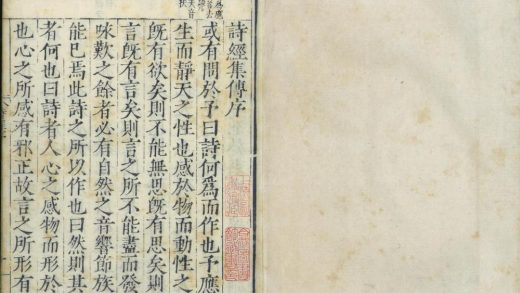 詩經集傳序
或有問於予曰詩何為而作也予應
生而靜天之性也感於物而動性之
既有欲矣則不能無思既有思矣則
言既有言矣則言之所不能盡而發
咏歎之餘者必有自然之音響節族
能已焉此詩之所以作也曰然則其
者何也曰詩者人心之感物而形於
也心之所感有邪正故言之所形有